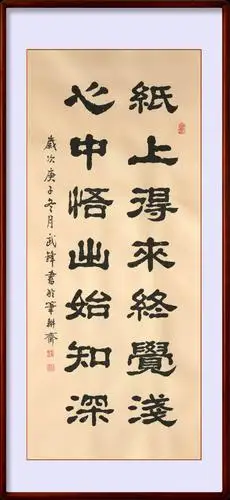 紙上得來終覺淺
心中悟出始知深
歲次庚子冬月武鋒書於筆耕齋